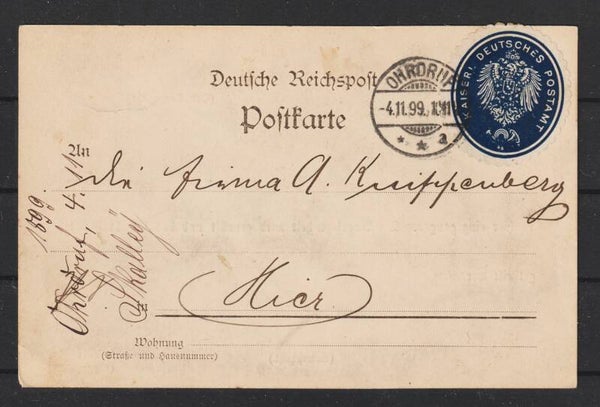 KAISERL. DEUTSCHES POSTAMT
Deutsche Reichspost
Postkarte
OHRDRUF
-4.11.99.
* * a
An
die Firma A. Knippenberg
Hier.
Wohnung
(Straße und Hausnummer)
Ohrdruf, 4. 11
1899.